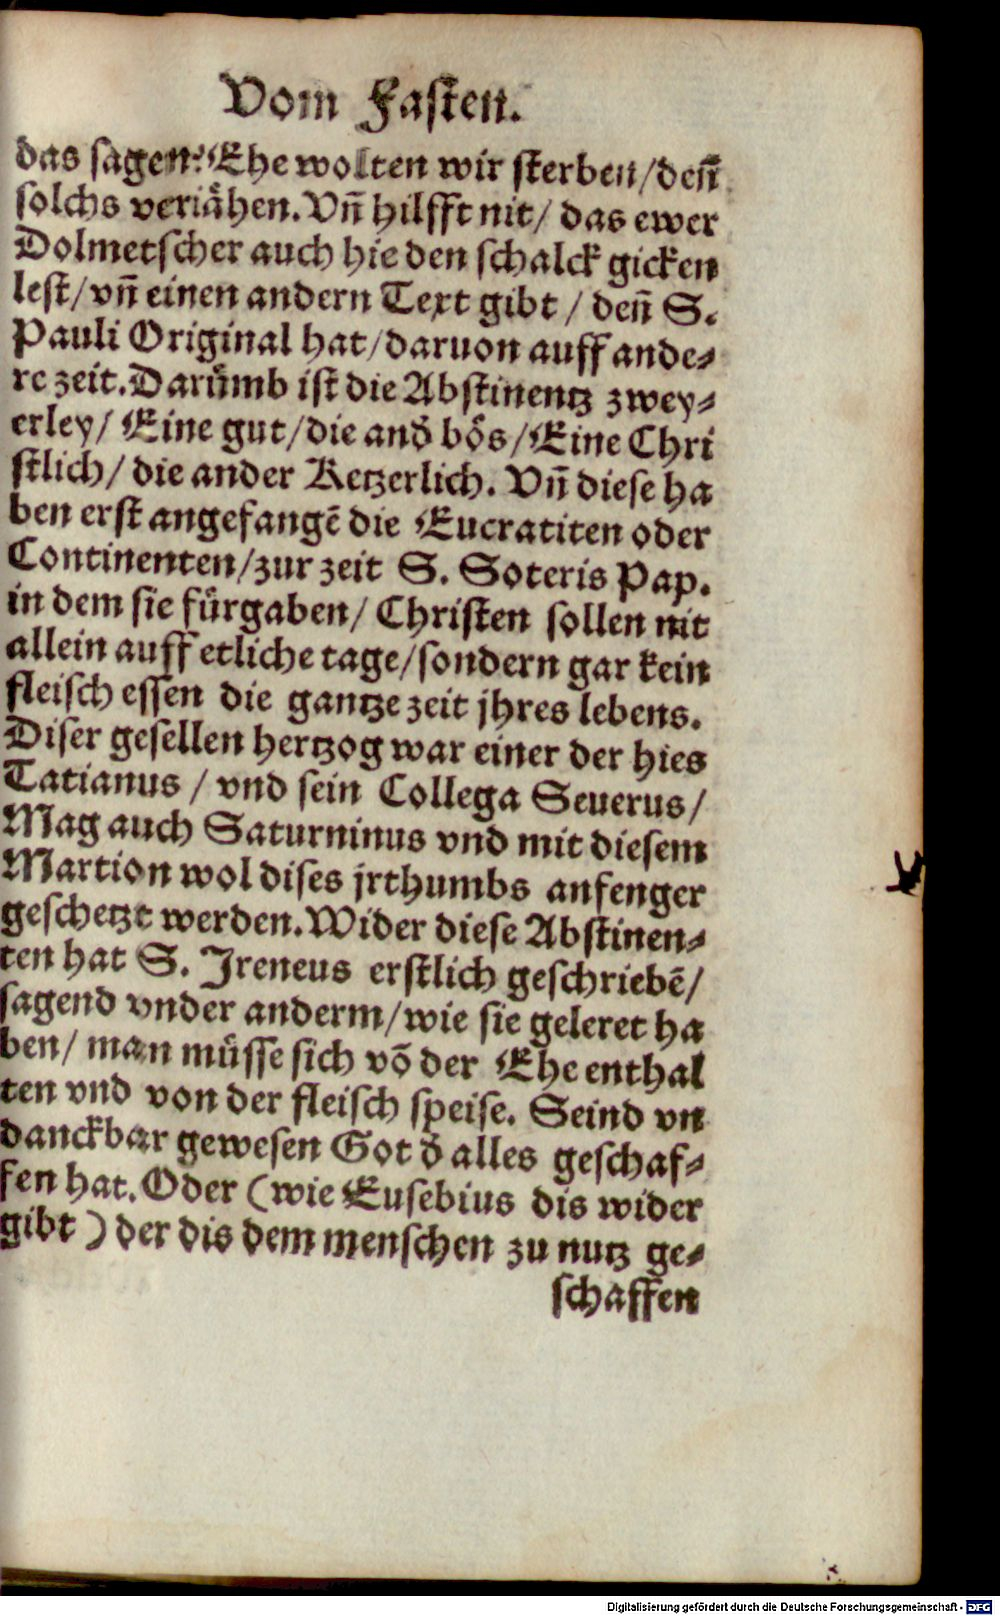 Vom Fasten.
das sagen? Ehe wolten wir sterben/ deñ
solchs veriähen. Vñ hilfft nit/ das ewer
Dolmetscher auch hie den schalck gicken
lest/ vñ einen andern Text gibt / deñ S.
Pauli Original hat/ daruon auff ande⸗
re zeit. Darümb ist die Abstinentz zwey⸗
erley/ Eine gut/ die and̕ bös/ Eine Chri
stlich/ die ander Ketzerlich. Vñ diese ha
ben erst angefangē die Eucratiten oder
Continenten/ zur zeit S. Soteris Pap.
in dem sie fürgaben/ Christen sollen nit
allein auff etliche tage/ sondern gar kein
fleisch essen die gantze zeit jhres lebens.
Diser gesellen hertzog war einer der hies
Tatianus / vnd sein Collega Seuerus/
Mag auch Saturninus vnd mit diesem
Martion wol dises jrthumbs anfenger
geschetzt werden. Wider diese Abstinen⸗
ten hat S. Jreneus erstlich geschriebē/
sagend vnder anderm/ wie sie geleret ha
ben/ man müsse sich võ der Ehe enthal
ten vnd von der fleisch speise. Seind vn
danckbar gewesen Got d̕ alles geschaf⸗
fen hat. Oder (wie Eusebius dis wider
gibt) der dis dem menschen zu nutz ge⸗
schaffen
Digitalisierung gefördert durch die Deutsche Forschungsgemeinschaft - DFG